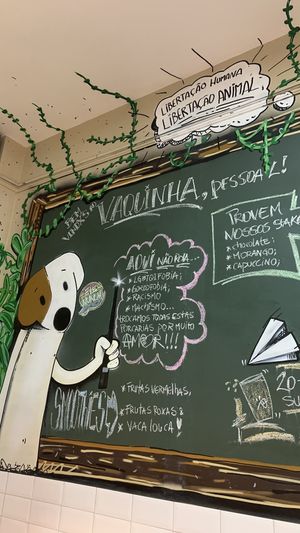 LIBERTAÇÃO HUMANA
LIBERTAÇÃO ANIMAL
VAQUINHA, PESSOAL!
AQUI NÃO ROLA...
* LGBTQIFOBIA;
* GORDOFOBIA;
* RACISMO
* MACHISMO...
TROCAMOS TODAS ESTAS
PORCARIAS POR MUITO
AMOR!!!
PROVEM
NOSSOS SHAKES
* CHOCOLATE;
* MORANGO;
* CAPUCCINO;
* FRUTAS VERMELHAS,
* FRUTAS ROXAS &
* VACA LOUCA!